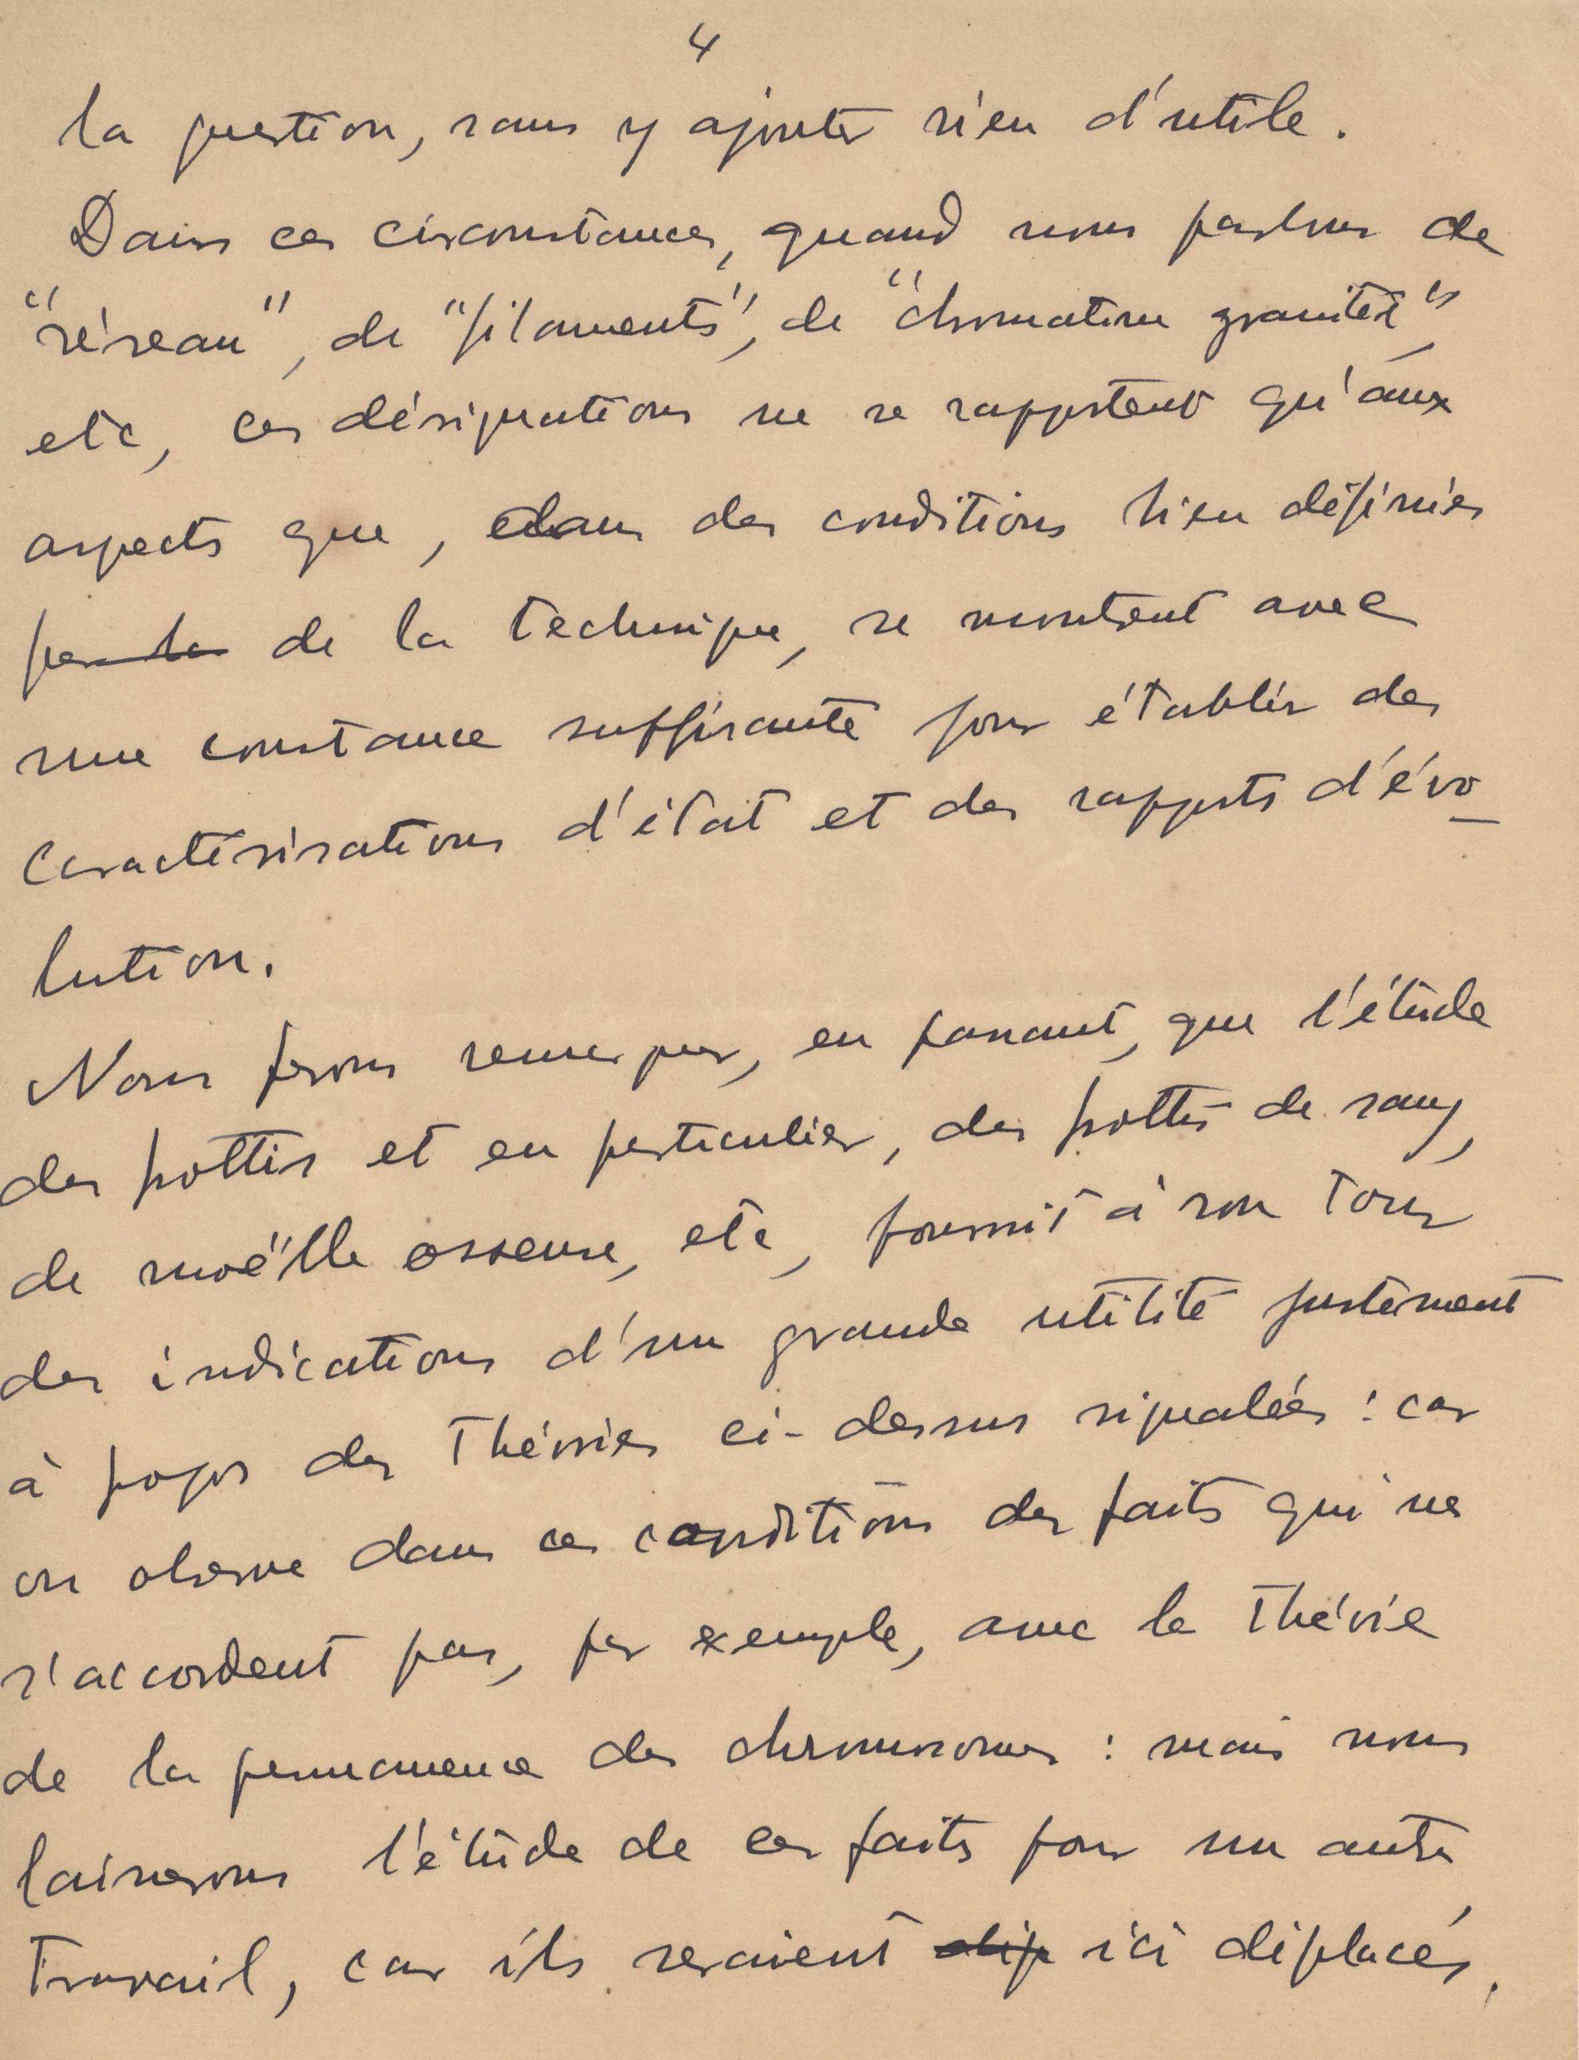 4
la question, sans y ajouter rien d'utile.
Dans ces circonstances, quand nous parlons de
"réseau", de "filaments", de "chromatine
etc, ces désignations ne se rapportent qu'aux
aspects que, dans des conditions bien définies
de la technique, se montrent avec
une constance suffisante pour établir des
caractérisations d'état et des rapports d'évo-
lution.
Nous ferons remarquer, en passant, que l'étude
des frottis et en particulier, des frottis de sang,
de moëlle osseuse, etc, fournit à son tour
des indications d'un grande utilité justement
à propos des théories ci-dessus signalées : car
on observe dans ces conditions des faits qui ne
s'accordent pas, par exemple, avec la théorie
de la permanence des chromosomes : mais nous
laisserons l'étude de ces faits pour un autre
travail, car ils seraient ici déplacés.